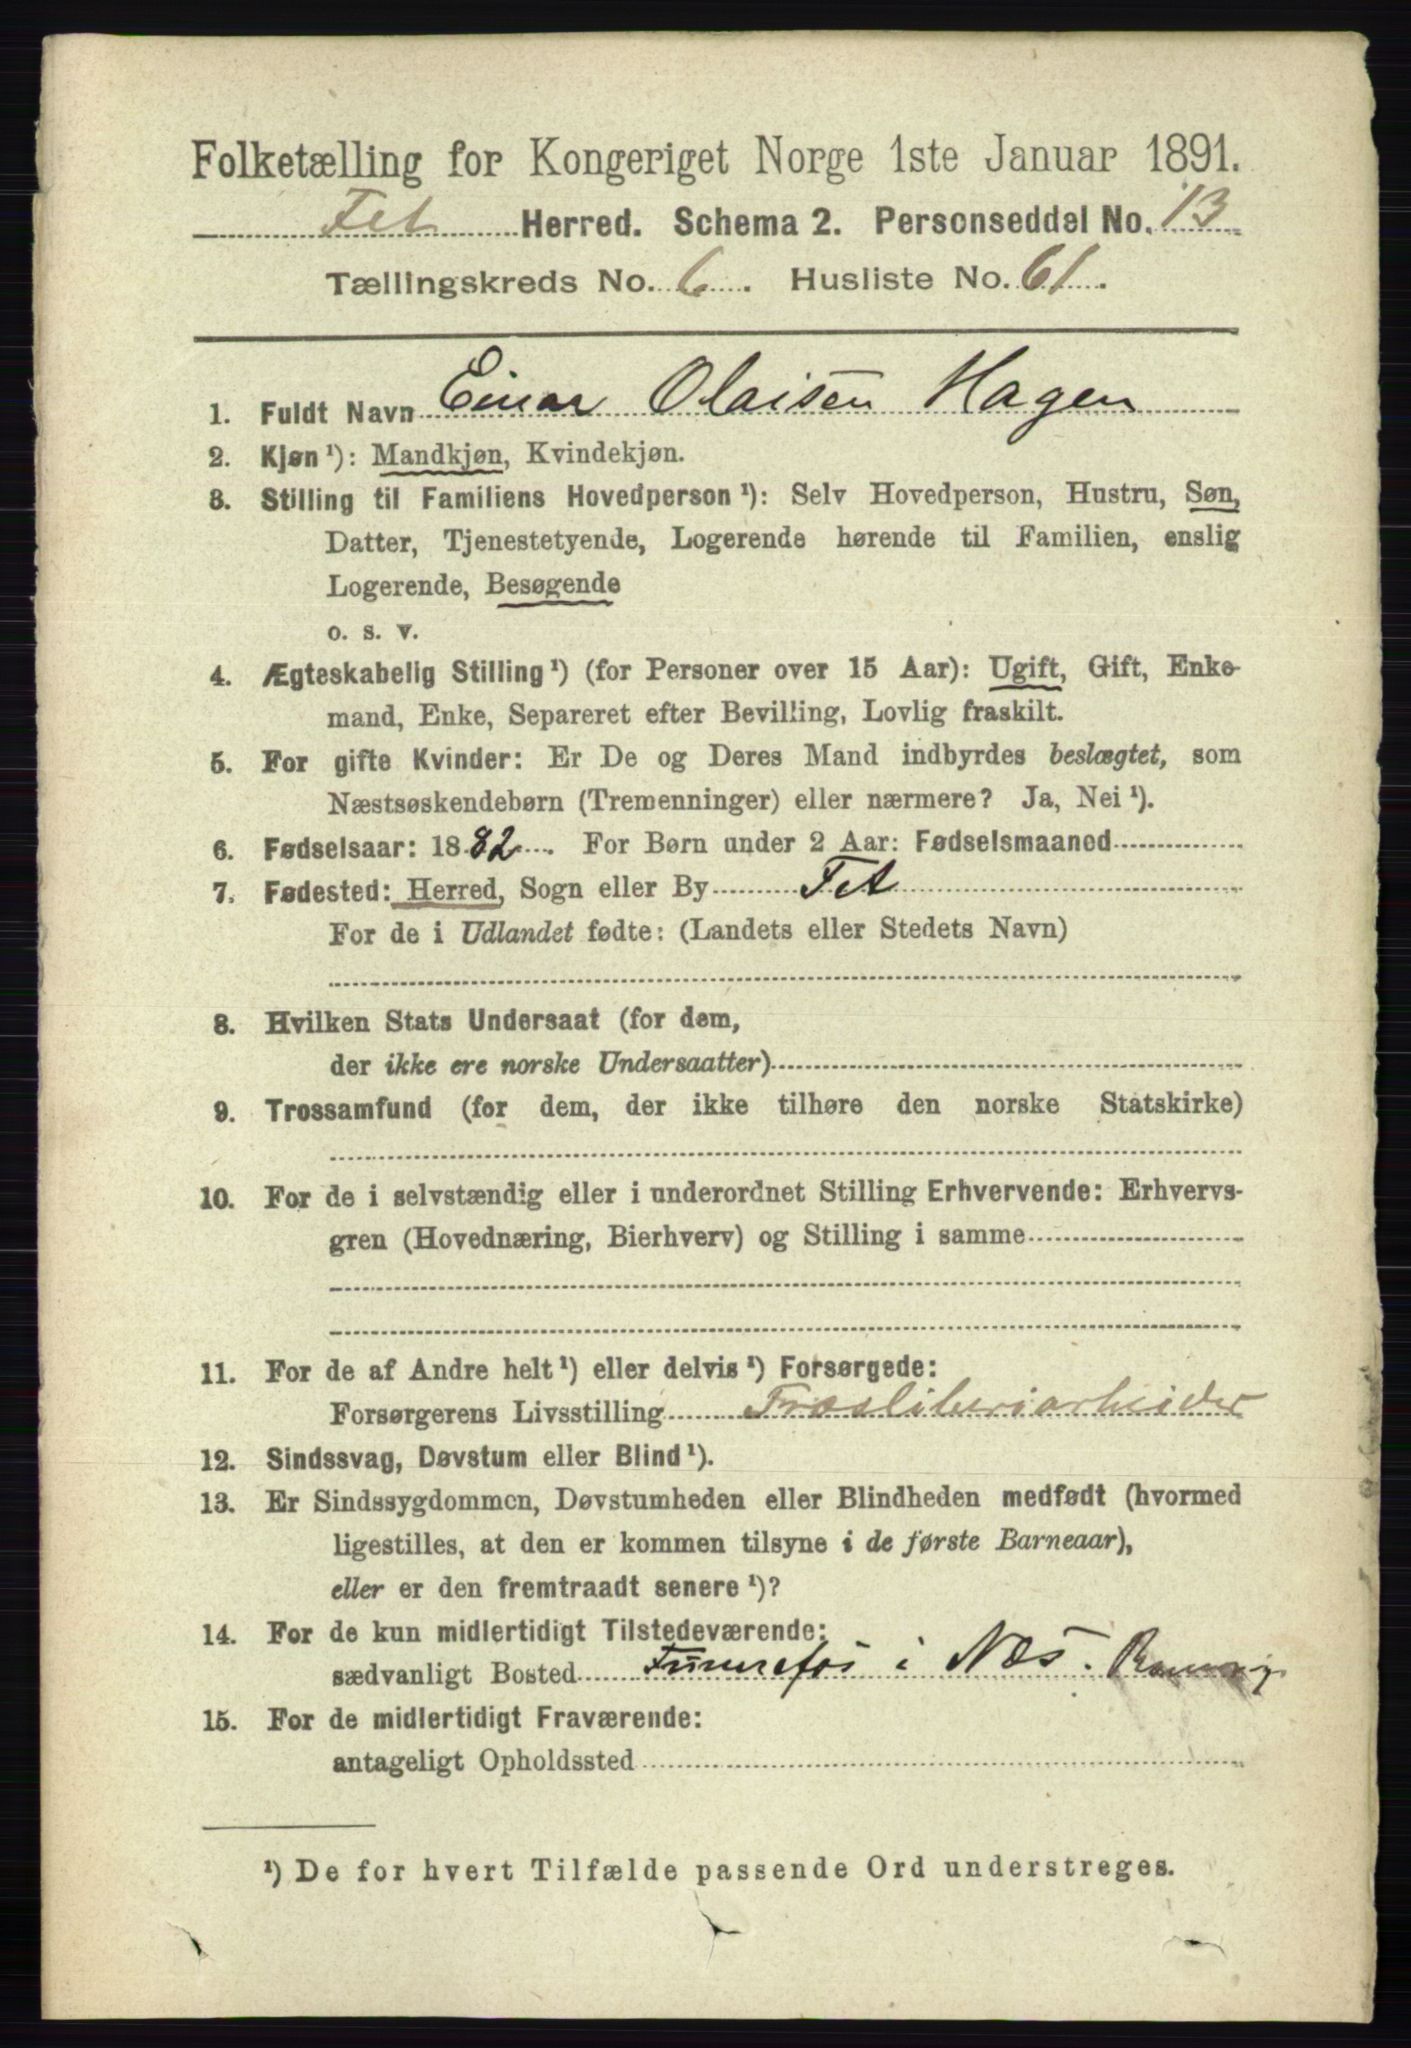 Folketælling for Kongeriget Norge 1ste Januar 1891.
Fet Herred. Schema 2. Personseddel No. 13
Tællingskreds No. 6. Husliste No. 61.
1. Fuldt Navn Einar Olaisen Hagen
2. Kjøn¹): Mandkjøn, Kvindekjøn.
3. Stilling til Familiens Hovedperson¹): Selv Hovedperson, Hustru, Søn,
Datter, Tjenestetyende, Logerende hørende til Familien, enslig
Logerende, Besøgende
o. s. v.
4. Ægteskabelig Stilling¹) (for Personer over 15 Aar): Ugift, Gift, Enke-
mand, Enke, Separeret efter Bevilling, Lovlig fraskilt.
5. For gifte Kvinder: Er De og Deres Mand indbyrdes beslægtet, som
Næstsøskendebørn (Tremenninger) eller nærmere? Ja, Nei¹).
6. Fødselsaar: 1882. For Børn under 2 Aar: Fødselsmaaned
7. Fødested: Herred, Sogn eller By Fet
For de i Udlandet fødte: (Landets eller Stedets Navn)
8. Hvilken Stats Undersaat (for dem,
der ikke ere norske Undersaatter)
9. Trossamfund (for dem, der ikke tilhøre den norske Statskirke)
10. For de i selvstændig eller i underordnet Stilling Erhvervende: Erhvervs-
gren (Hovednæring, Bierhverv) og Stilling i samme
11. For de af Andre helt¹) eller delvis¹) Forsørgede:
Forsørgerens Livsstilling Træsliberiarbeider
12. Sindssvag, Døvstum eller Blind¹).
13. Er Sindssygdommen, Døvstumheden eller Blindheden medfødt (hvormed
ligestilles, at den er kommen tilsyne i de første Barneaar),
eller er den fremtraadt senere¹)?
14. For de kun midlertidigt Tilstedeværende:
sædvanligt Bosted i Næs.
15. For de midlertidigt Fraværende:
antageligt Opholdssted
¹) De for hvert Tilfælde passende Ord understreges.